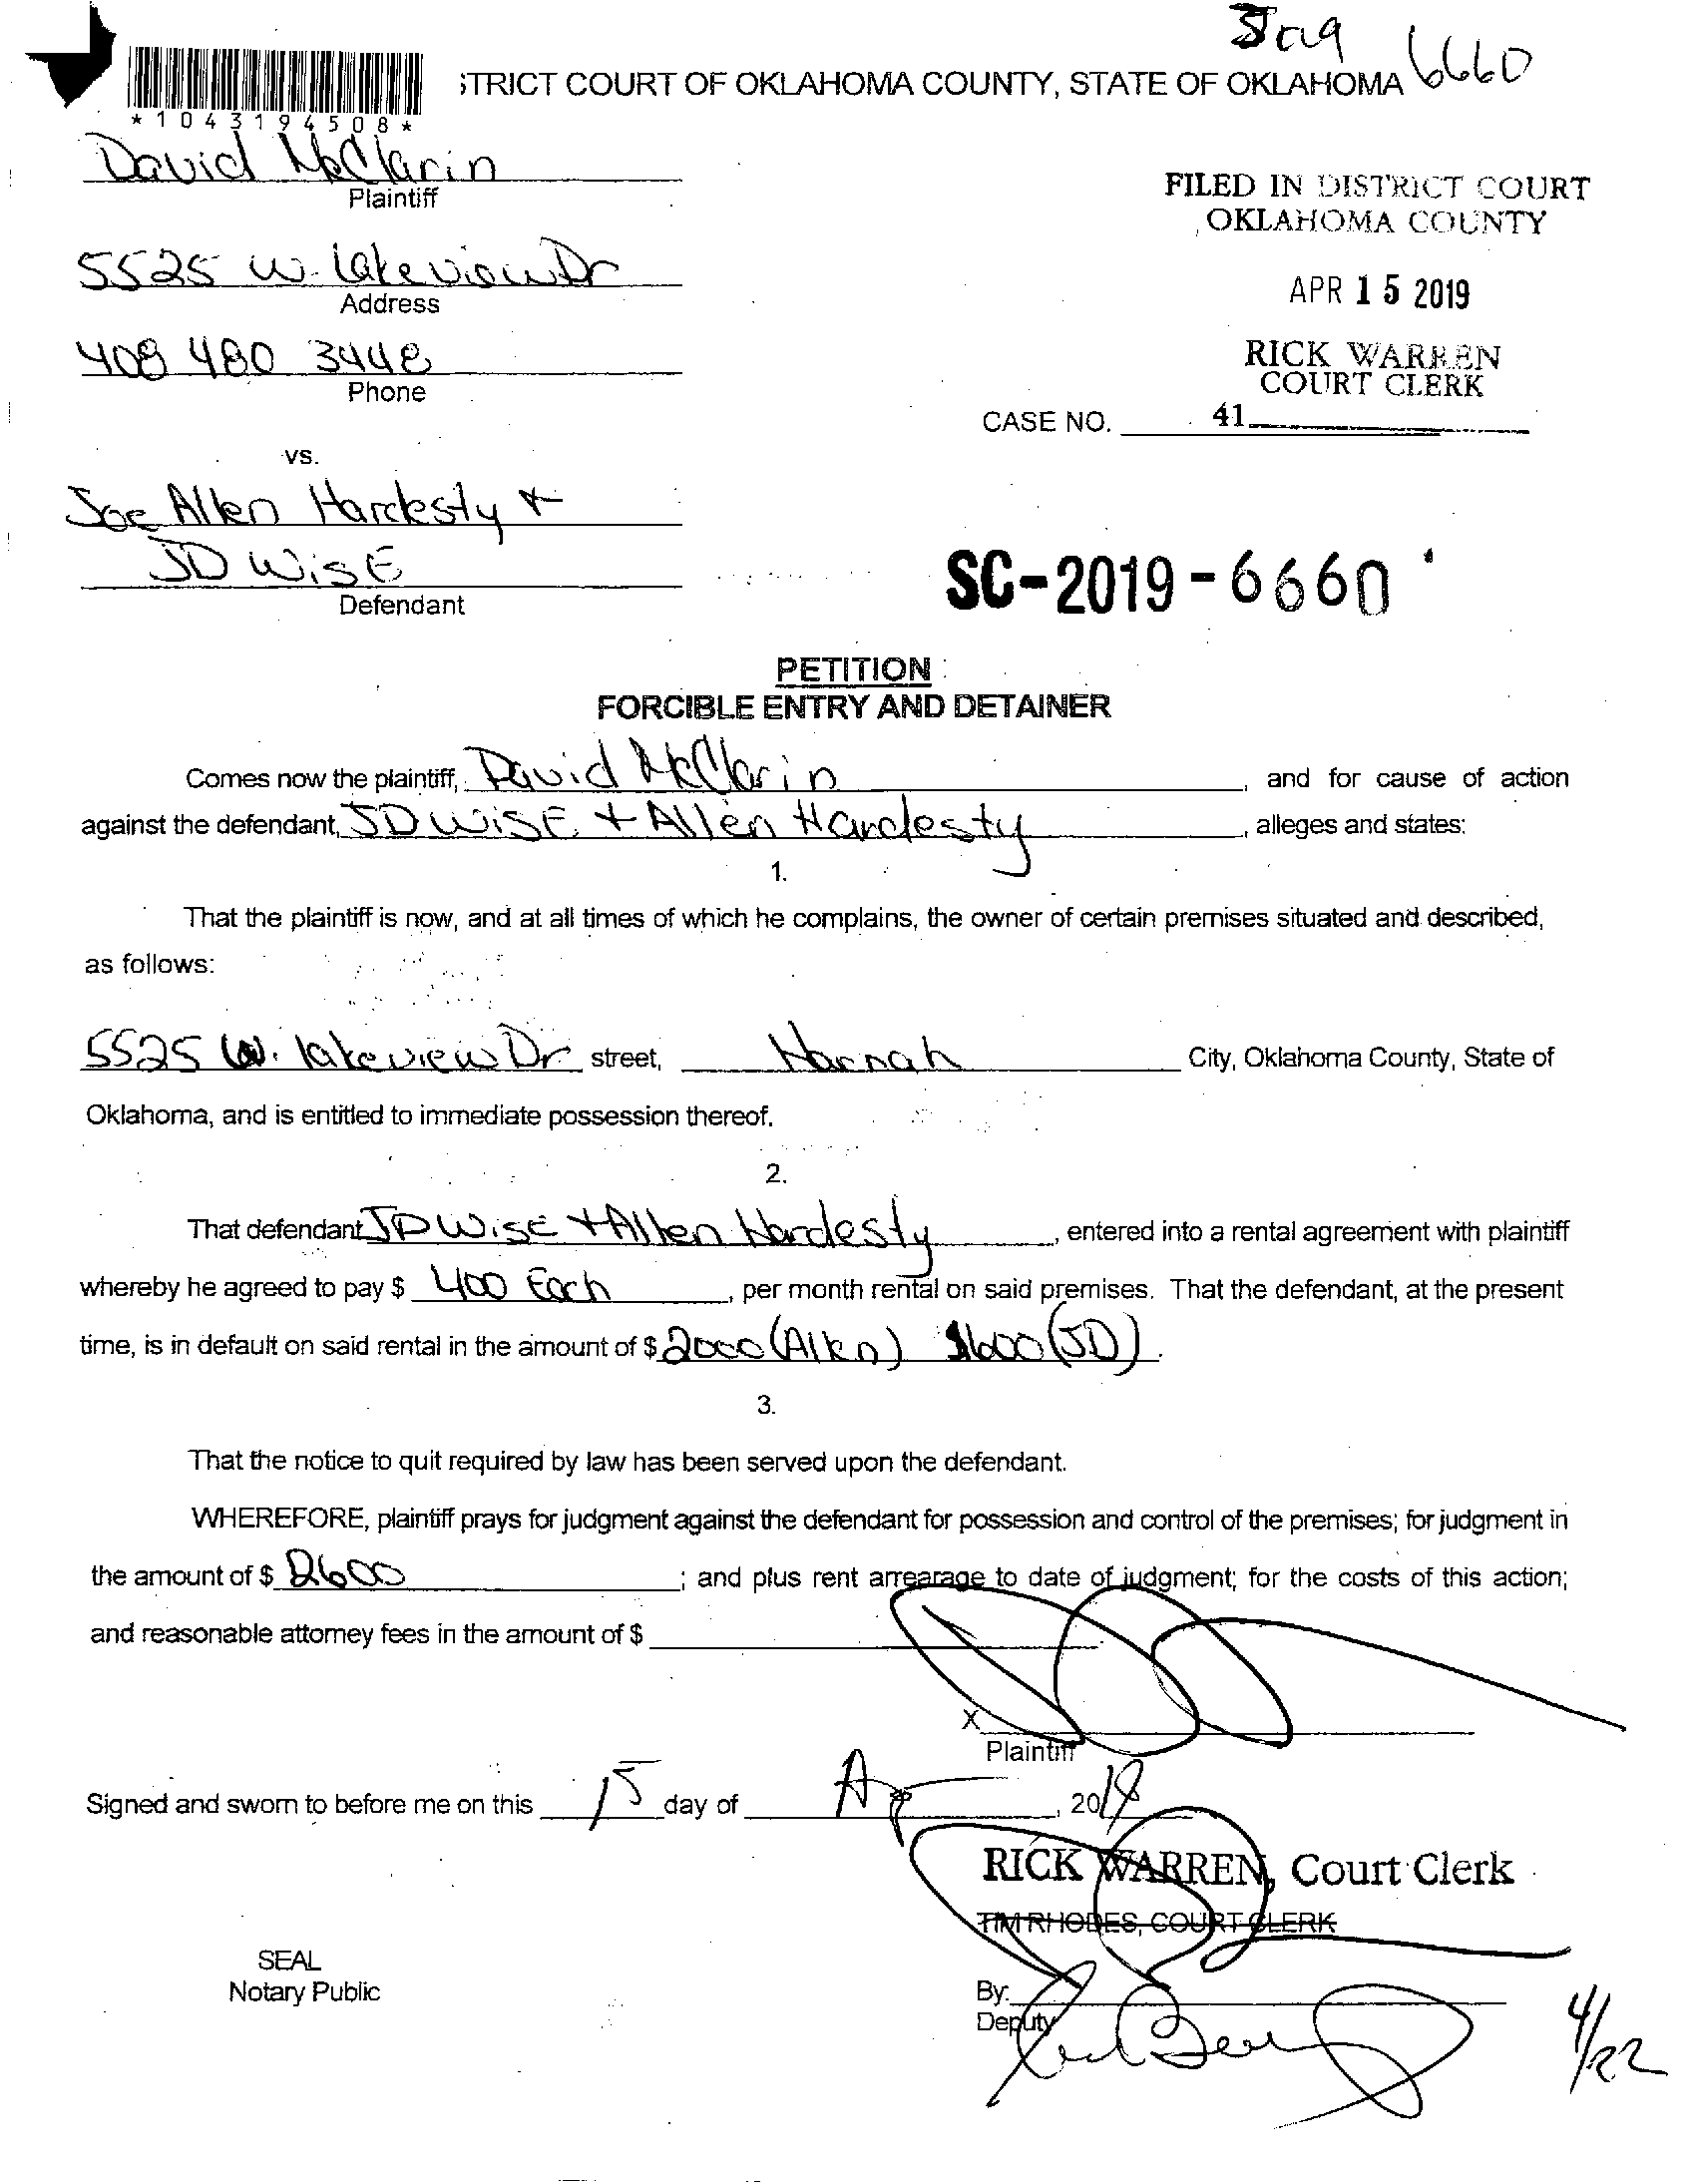 6660
STRICT COURT OF OKLAHOMA COUNTY, STATE OF OKLAHOMA
*1043194508*
David McClarin
Plaintiff
FILED IN DISTRICT COURT
OKLAHOMA COUNTY
5525 W. Lakeview Dr
Address
APR 15 2019
408 480 3448
Phone
RICK WARREN
COURT CLERK
CASE NO. 41
vs.
Joe Allen Hardesty +
JD WisE
Defendant
SC-2019-6660
PETITION
FORCIBLE ENTRY AND DETAINER
Comes now the plaintiff, David McClarin, and for cause of action
against the defendant, JD WisE + Allen Hardesty, alleges and states:
1.
That the plaintiff is now, and at all times of which he complains, the owner of certain premises situated and described,
as follows:
5525 W. lakeview Dr street, Harrah City, Oklahoma County, State of
Oklahoma, and is entitled to immediate possession thereof.
2.
That defendant JD WisE + Allen Hardesty, entered into a rental agreement with plaintiff
whereby he agreed to pay $ 400 Each, per month rental on said premises. That the defendant, at the present
time, is in default on said rental in the amount of $ 2000 (Allen) (JD).
3.
That the notice to quit required by law has been served upon the defendant.
WHEREFORE, plaintiff prays for judgment against the defendant for possession and control of the premises; for judgment in
the amount of $ 2600; and plus rent arrearage to date of judgment; for the costs of this action;
and reasonable attorney fees in the amount of $
X
Plaintiff
Signed and sworn to before me on this 15 day of Ap, 2019
RICK WARREN, Court Clerk
TIM RHODES, COURT CLERK
SEAL
Notary Public
By:
Deputy
4/22